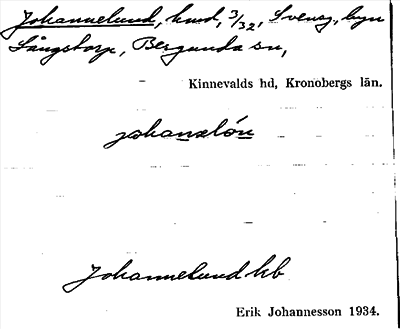 Johannelund, hmd, 3/32, Svensg, byn
Långstorp, Bergunda sn,
Kinnevalds hd, Kronobergs län.
johanslón
Johannelund hb
Erik Johannesson 1934.